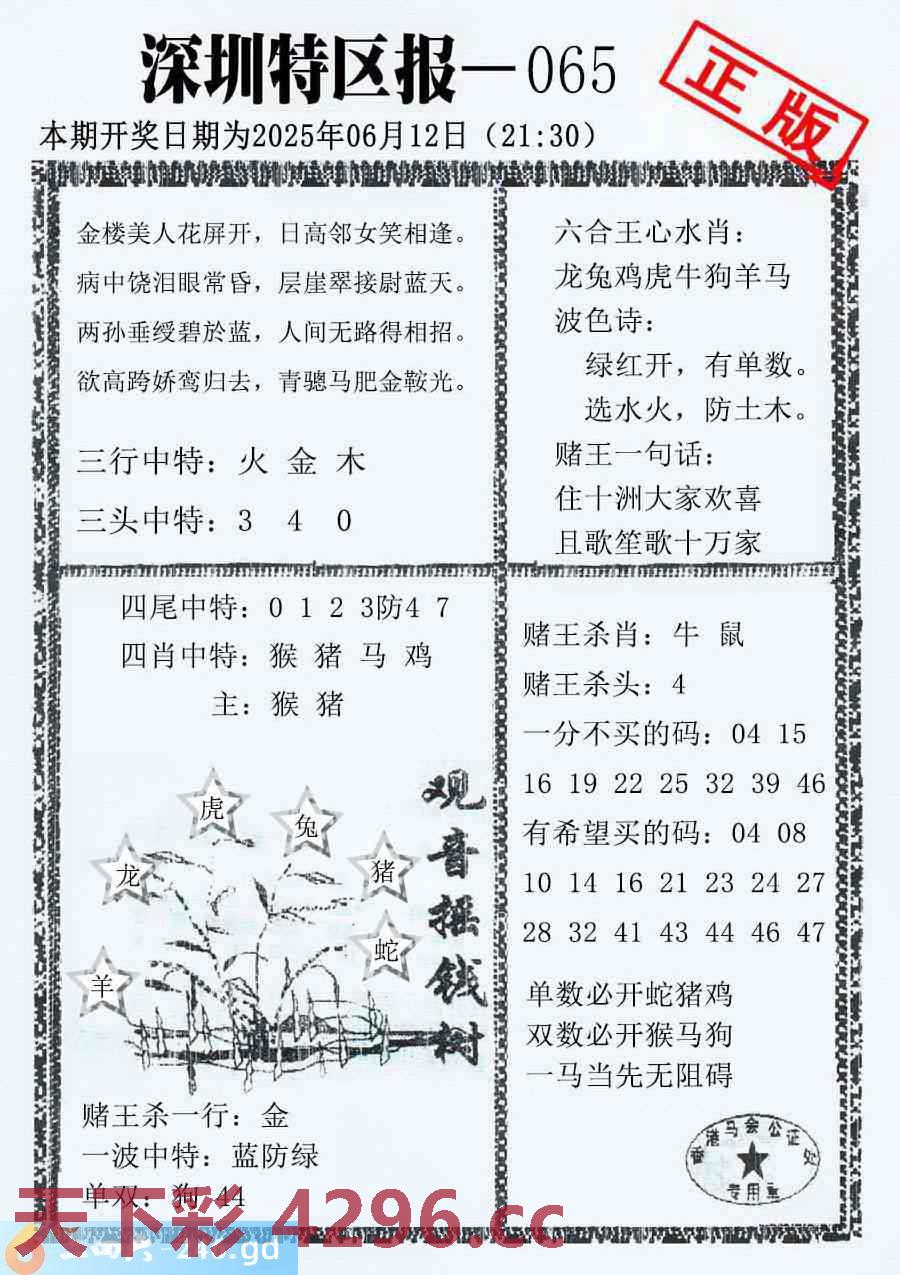 深圳特区报—065
正版
本期开奖日期为2025年06月12日（21:30）
金楼美人花屏开，日高邻女笑相逢。
病中饶泪眼常昏，层崖翠接尉蓝天。
两孙垂绶碧於蓝，人间无路得相招。
欲高跨娇鸾归去，青骢马肥金鞍光。
三行中特：火 金 木
三头中特：3 4 0
六合王心水肖：
龙兔鸡虎牛狗羊马
波色诗：
绿红开，有单数。
选水火，防土木。
赌王一句话：
住十洲大家欢喜
且歌笙歌十万家
四尾中特：0 1 2 3防4 7
四肖中特：猴 猪 马 鸡
主：猴 猪
观音摇钱树
虎
兔
龙
猪
蛇
羊
赌王杀一行：金
一波中特：蓝防绿
单双：狗 44
赌王杀肖：牛 鼠
赌王杀头：4
一分不买的码：04 15
16 19 22 25 32 39 46
有希望买的码：04 08
10 14 16 21 23 24 27
28 32 41 43 44 46 47
单数必开蛇猪鸡
双数必开猴马狗
一马当先无阻碍
香港马会公证处
专用章
天下彩 4296.cc
-246.gd